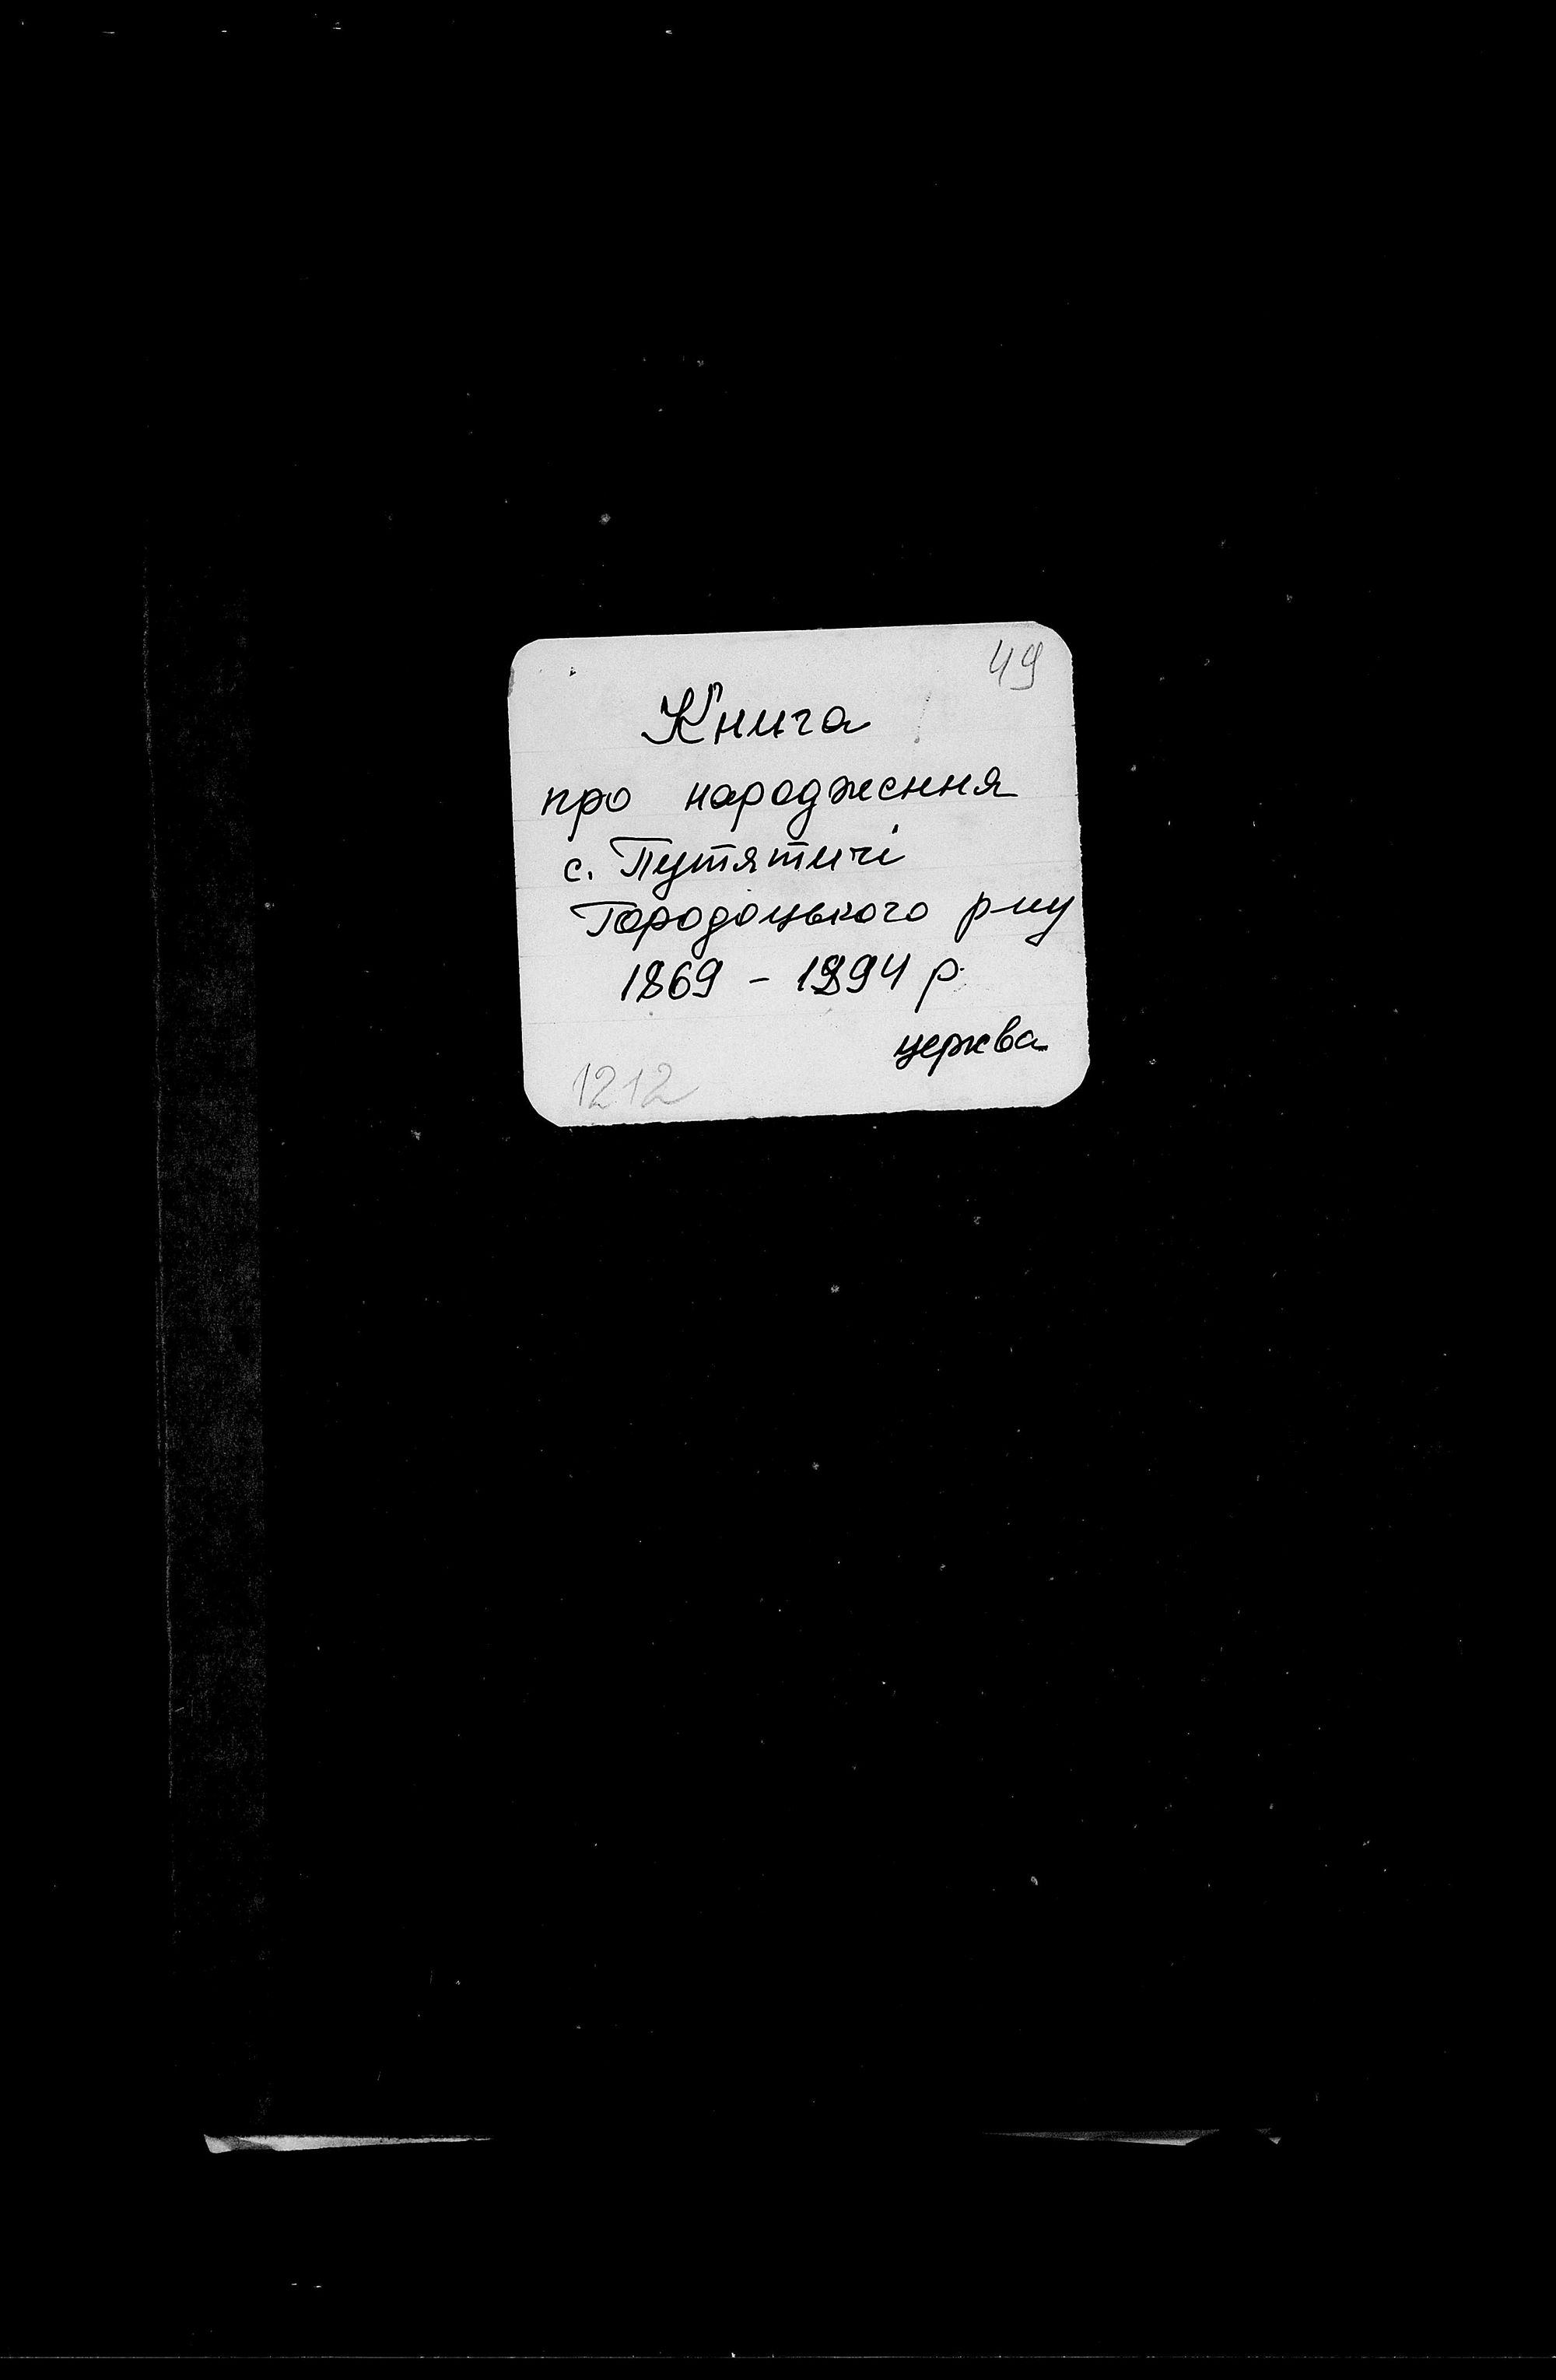 49
Книга
про народження
с. Путятичі
Городоцького р-ну
1869 - 1894 р.
церква
1212